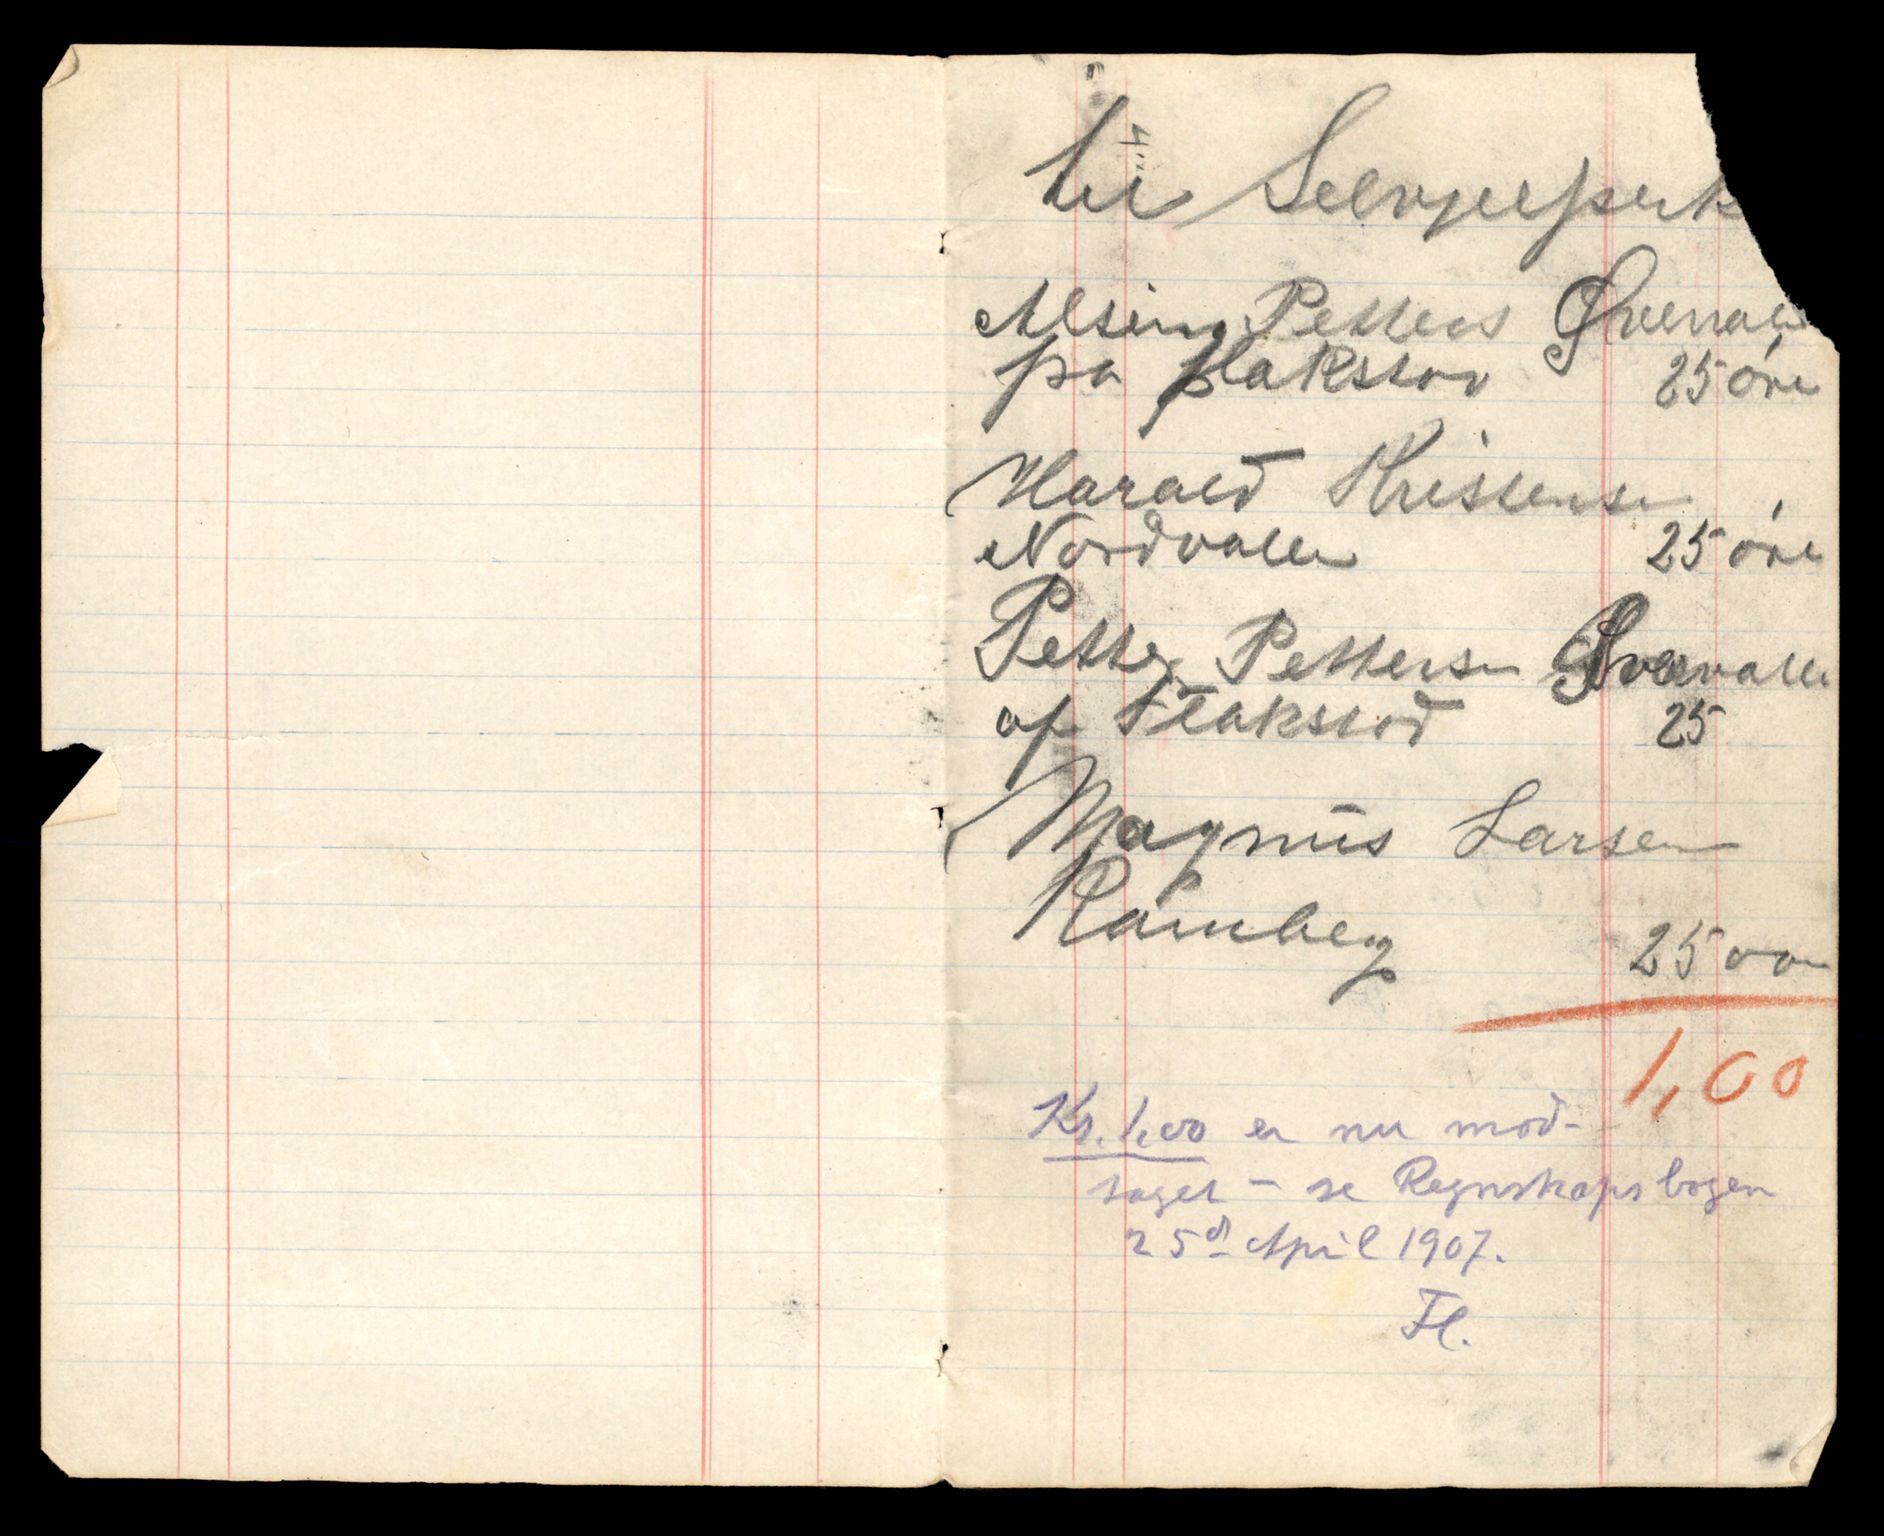 til
Petters
på Flakstad 25 øre
Harald Kristensen
Nordvallen 25 øre
Petter Pettersen Øvervalle
af Flakstad 25
Magnus Larsen
Ramberg 25
1,00
Kr. 1,00 er nu mod-
taget - se Regnskapsbogen
25d April 1907.
Fl.